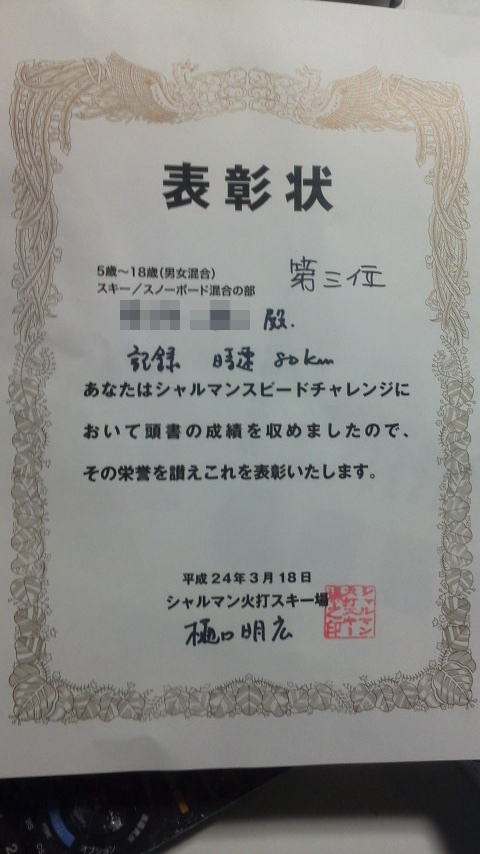 表彰状
5歳～18歳(男女混合)
スキー／スノーボード混合の部
第三位
殿.
記録 時速 80km
あなたはシャルマンスピードチャレンジに
おいて頭書の成績を収めましたので、
その栄誉を讃えこれを表彰いたします。
平成24年3月18日
シャルマン火打スキー場
樋口明広